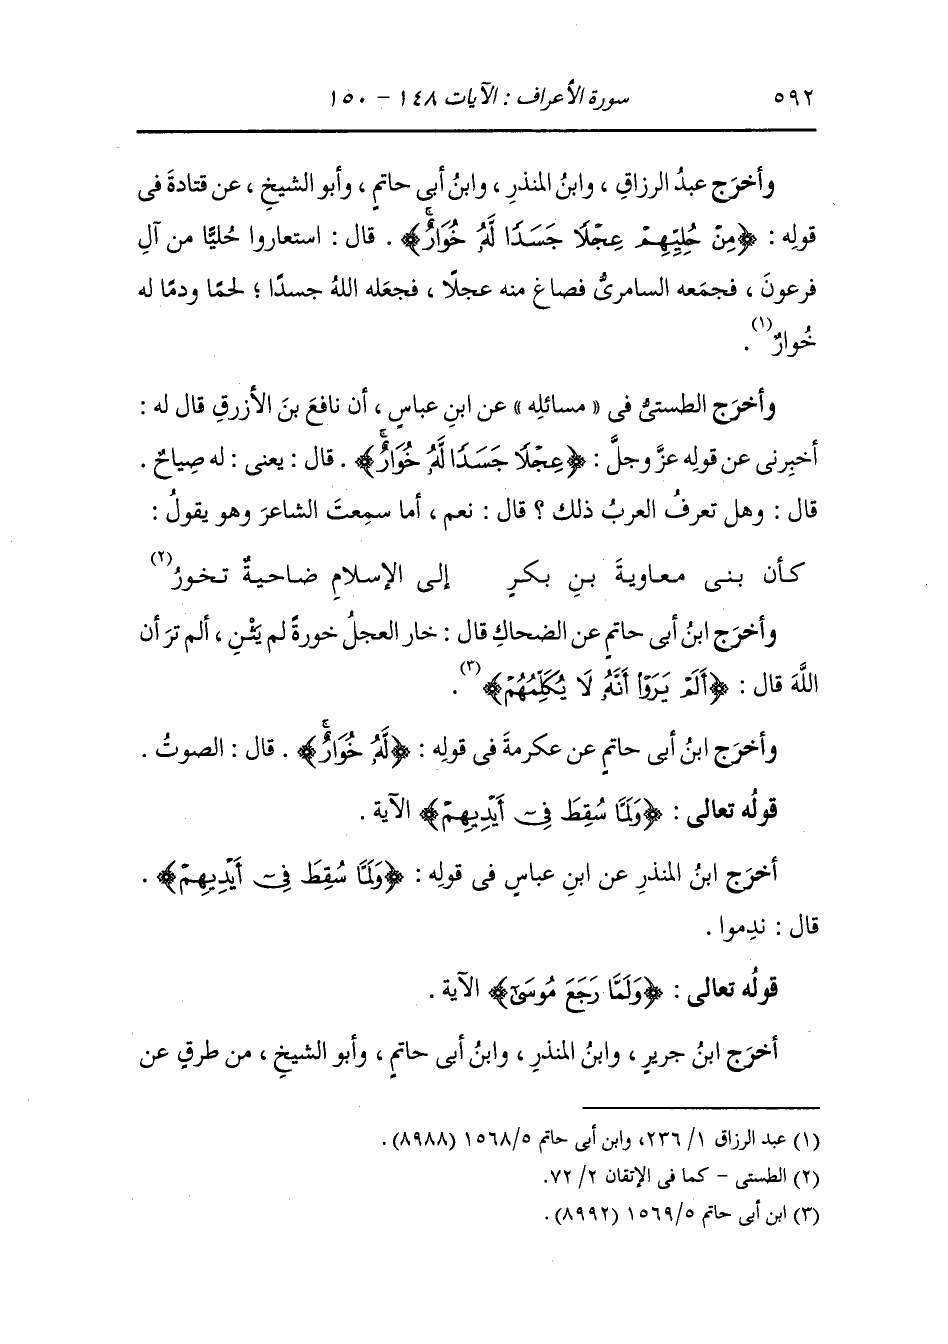 ٥٩٢ سورة الأعراف : الآيات ١٤٨ - ١٥٠
وأخرَج عبدُ الرزاقِ ، وابنُ المنذرِ ، وابنُ أبى حاتمٍ ، وأبو الشيخِ ، عن قتادةَ فى
قولِه : ﴿مِنْ حُلِيِّهِمْ عِجْلًا جَسَدًا لَّهُ خُوَارٌۚ﴾ . قال : استعاروا حُليًّا من آلِ
فرعونَ ، فجمَعه السامرىُّ فصاغ منه عجلًا ، فجعَله اللهُ جسدًا ؛ لحمًا ودمًا له
خُوارٌ(١).
وأخرَج الطستىُّ فى « مسائلِه » عن ابنِ عباسٍ ، أن نافعَ بنَ الأزرقِ قال له :
أخبِرنى عن قولِه عزَّ وجلَّ : ﴿عِجْلًا جَسَدًا لَّهُ خُوَارٌۚ﴾ . قال : يعنى : له صِياحٌ .
قال : وهل تعرفُ العربُ ذلك ؟ قال : نعم ، أما سمِعتَ الشاعرَ وهو يقولُ :
كأن بنى معاويةَ بنِ بكرٍ إلى الإسلامِ ضاحيةٌ تخورُ(٢)
وأخرَج ابنُ أبى حاتمٍ عن الضحاكِ قال : خار العجلُ خورةً لم يَثْنِ ، ألم ترَ أن
اللَّهَ قال : ﴿أَلَمْ يَرَوْا أَنَّهُ لَا يُكَلِّمُهُمْ﴾(٣).
وأخرَج ابنُ أبى حاتمٍ عن عكرمةَ فى قولِه : ﴿لَّهُ خُوَارٌۚ﴾ . قال : الصوتُ .
قولُه تعالى : ﴿وَلَمَّا سُقِطَ فِىٓ أَيْدِيهِمْ﴾ الآية .
أخرَج ابنُ المنذرِ عن ابنِ عباسٍ فى قولِه : ﴿وَلَمَّا سُقِطَ فِىٓ أَيْدِيهِمْ﴾ .
قال : ندِموا .
قولُه تعالى : ﴿وَلَمَّا رَجَعَ مُوسَىٰٓ﴾ الآية .
أخرَج ابنُ جريرٍ ، وابنُ المنذرِ ، وابنُ أبى حاتمٍ ، وأبو الشيخِ ، من طرقٍ عن
(١) عبد الرزاق ١/ ٢٣٦، وابن أبى حاتم ١٥٦٨/٥ (٨٩٨٨).
(٢) الطستى - كما فى الإتقان ٢/ ٧٢.
(٣) ابن أبى حاتم ١٥٦٩/٥ (٨٩٩٢).